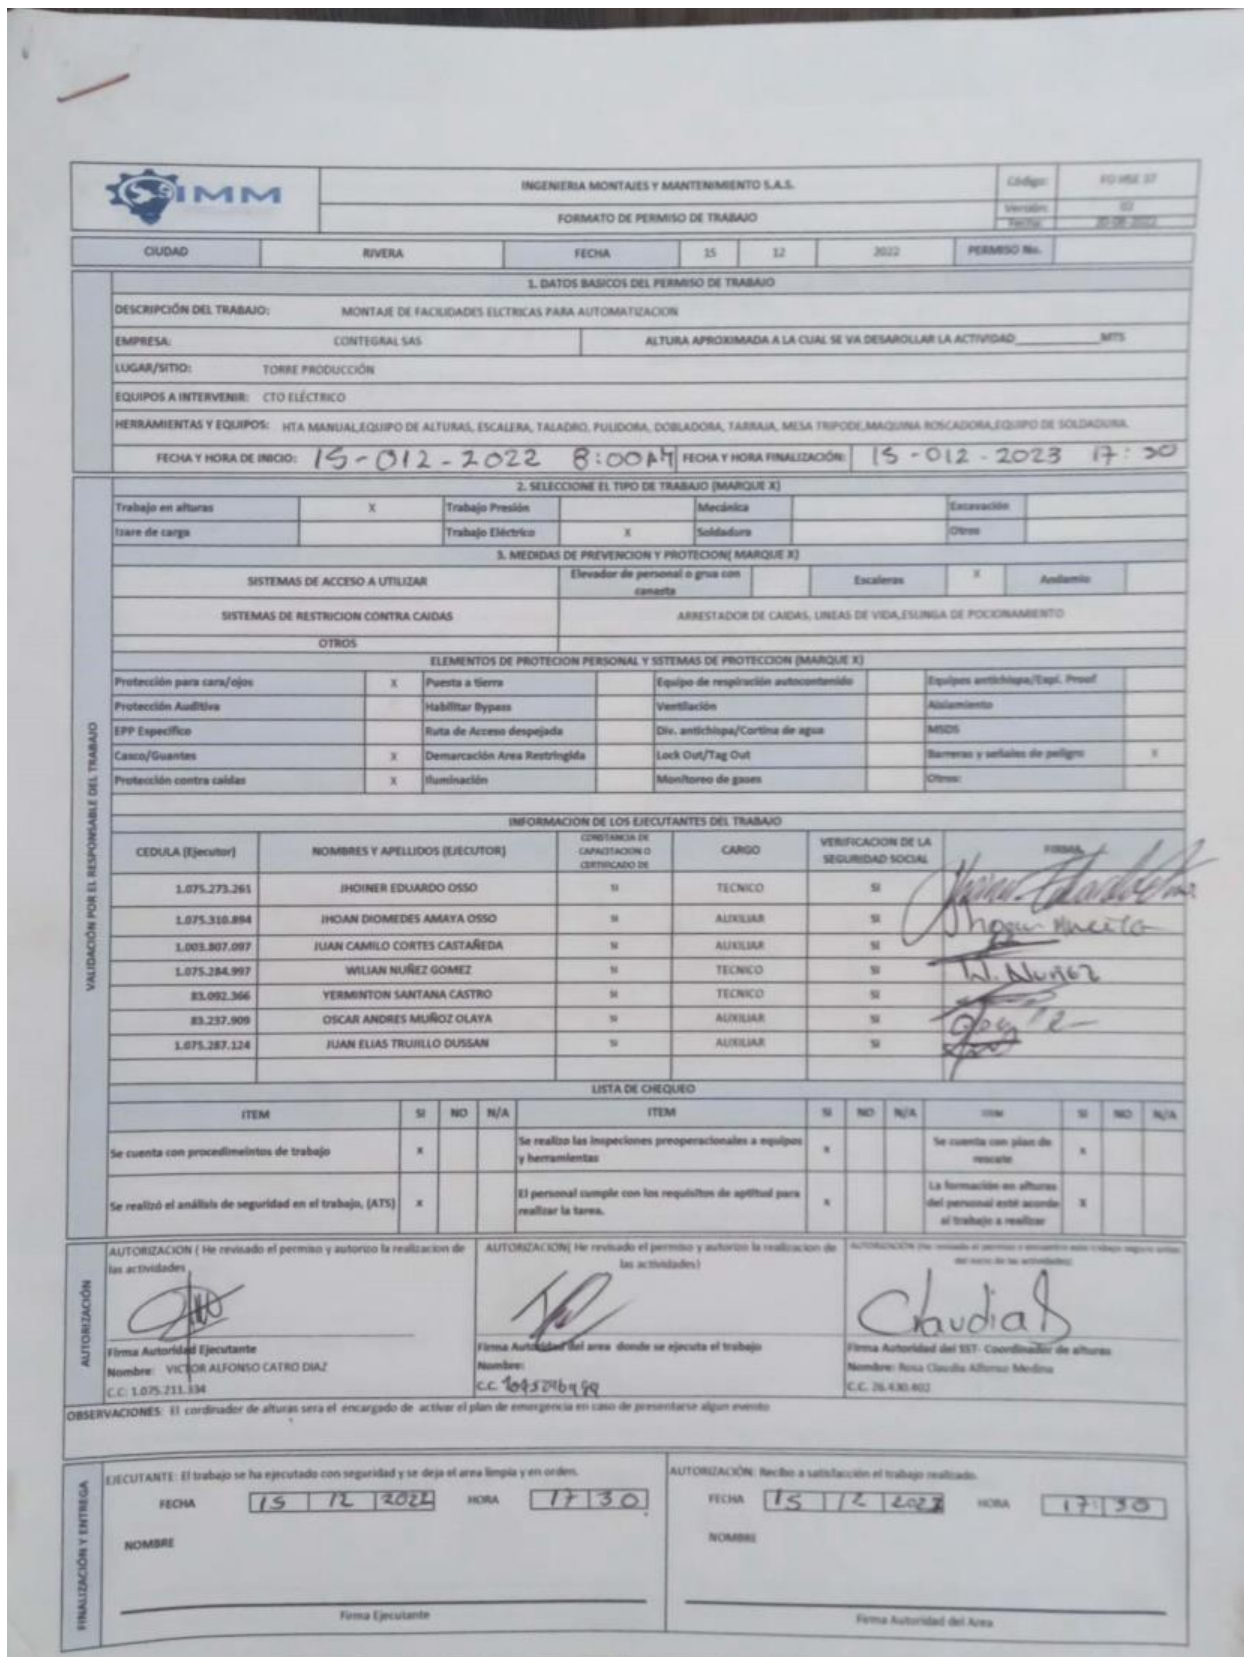 SIMM
INGENIERIA MONTAJES Y MANTENIMIENTO S.A.S.
FORMATO DE PERMISO DE TRABAJO
Código: FO HSE 37
Versión: 02
Fecha: 20-08-2022
CIUDAD RIVERA FECHA 15 12 2022 PERMISO No.
1. DATOS BASICOS DEL PERMISO DE TRABAJO
DESCRIPCIÓN DEL TRABAJO: MONTAJE DE FACILIDADES ELCTRICAS PARA AUTOMATIZACION
EMPRESA: CONTEGRAL SAS ALTURA APROXIMADA A LA CUAL SE VA DESAROLLAR LA ACTIVIDAD____________MTS
LUGAR/SITIO: TORRE PRODUCCIÓN
EQUIPOS A INTERVENIR: CTO ELÉCTRICO
HERRAMIENTAS Y EQUIPOS: HTA MANUAL,EQUIPO DE ALTURAS, ESCALERA, TALADRO, PULIDORA, DOBLADORA, TARRAJA, MESA TRIPODE,MAQUINA ROSCADORA,EQUIPO DE SOLDADURA.
FECHA Y HORA DE INICIO: 15-012-2022 8:00AM FECHA Y HORA FINALIZACIÓN: 15-012-2023 17:30
2. SELECCIONE EL TIPO DE TRABAJO (MARQUE X)
Trabajo en alturas X Trabajo Presión Mecánica Excavación
Izare de carga Trabajo Eléctrico X Soldadura Otros
3. MEDIDAS DE PREVENCION Y PROTECION( MARQUE X)
SISTEMAS DE ACCESO A UTILIZAR Elevador de personal o grua con canasta Escaleras X Andamio
SISTEMAS DE RESTRICION CONTRA CAIDAS ARRESTADOR DE CAIDAS, LINEAS DE VIDA,ESLINGA DE POCIONAMIENTO
OTROS
ELEMENTOS DE PROTECION PERSONAL Y SSTEMAS DE PROTECCION (MARQUE X)
Protección para cara/ojos X Puesta a tierra Equipo de respiración autocontenido Equipos antichispa/Expl. Proof
Protección Auditiva Habilitar Bypass Ventilación Aislamiento
EPP Especifico Ruta de Acceso despejada Div. antichispa/Cortina de agua MSDS
Casco/Guantes X Demarcación Area Restringida Lock Out/Tag Out Barreras y señales de peligro X
Protección contra caidas X Iluminación Monitoreo de gases Otros:
VALIDACIÓN POR EL RESPONSABLE DEL TRABAJO
INFORMACION DE LOS EJECUTANTES DEL TRABAJO
CEDULA (Ejecutor) NOMBRES Y APELLIDOS (EJECUTOR) CONSTANCIA DE CAPACITACION O CERTIFICADO DE CARGO VERIFICACION DE LA SEGURIDAD SOCIAL FIRMA
1.075.273.261 JHOINER EDUARDO OSSO SI TECNICO SI
1.075.310.894 JHOAN DIOMEDES AMAYA OSSO SI AUXILIAR SI
1.003.807.097 JUAN CAMILO CORTES CASTAÑEDA SI AUXILIAR SI
1.075.284.997 WILIAN NUÑEZ GOMEZ SI TECNICO SI W. Nuñez
83.092.366 YERMINTON SANTANA CASTRO SI TECNICO SI
83.237.909 OSCAR ANDRES MUÑOZ OLAYA SI AUXILIAR SI
1.075.287.124 JUAN ELIAS TRUJILLO DUSSAN SI AUXILIAR SI
LISTA DE CHEQUEO
ITEM SI NO N/A ITEM SI NO N/A ITEM SI NO N/A
Se cuenta con procedimeintos de trabajo x Se realizo las inspeciones preoperacionales a equipos y herramientas x Se cuenta con plan de rescate x
Se realizó el análisis de seguridad en el trabajo, (ATS) x El personal cumple con los requisitos de aptitud para realizar la tarea. x La formación en alturas del personal esté acorde al trabajo a realizar x
AUTORIZACIÓN
AUTORIZACION ( He revisado el permiso y autorizo la realizacion de las actividades
AUTORIZACION( He revisado el permiso y autorizo la realizacion de las actividades)
Claudia
Firma Autoridad Ejecutante Firma Autoridad del area donde se ejecuta el trabajo Firma Autoridad del SST- Coordinador de alturas
Nombre: VICTOR ALFONSO CATRO DIAZ Nombre: Nombre: Rosa Claudia Alfonso Medina
C.C: 1.075.211.334 C.C. C.C. 26.430.402
OBSERVACIONES: El cordinador de alturas sera el encargado de activar el plan de emergencia en caso de presentarse algun evento
FINALIZACIÓN Y ENTREGA
EJECUTANTE: El trabajo se ha ejecutado con seguridad y se deja el area limpia y en orden. AUTORIZACIÓN: Recibo a satisfacción el trabajo realizado.
FECHA 15 12 2022 HORA 17 30 FECHA 15 12 2023 HORA 17:30
NOMBRE NOMBRE
Firma Ejecutante Firma Autoridad del Area